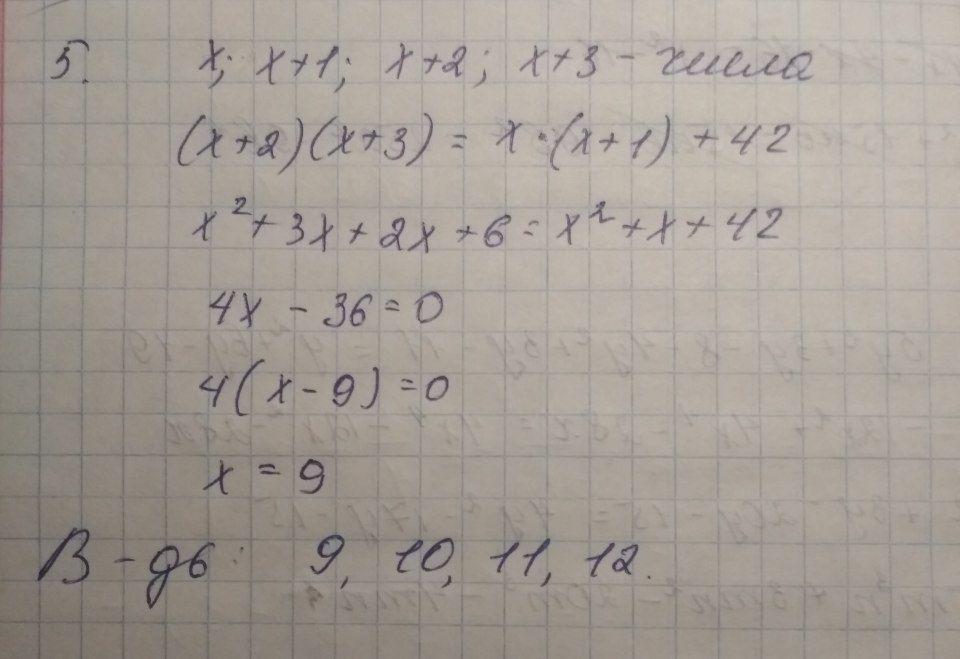 5. x; x+1; x+2; x+3 - числа
(x+2)(x+3) = x·(x+1) + 42
x² + 3x + 2x + 6 = x² + x + 42
4x - 36 = 0
4(x - 9) = 0
x = 9
В-дь: 9, 10, 11, 12.